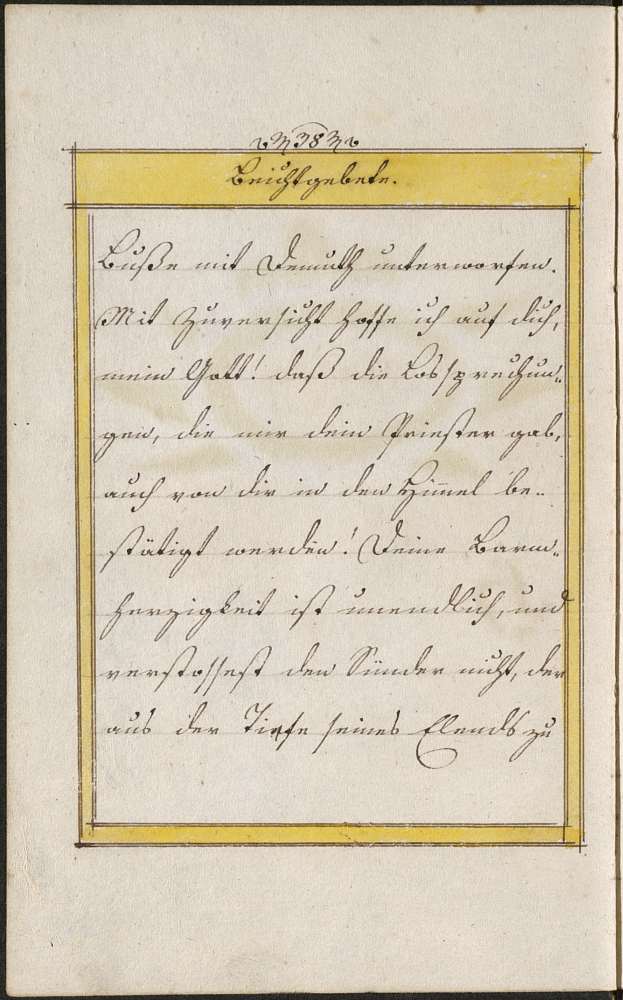 38
Beichtgebete.
Buße mit Demuth unterworfen.
Mit Zuversicht hoffe ich auf dich,
mein Gott! daß die Lossprechun=
gen, die mir dein Priester gab,
auch von dir in den Him̅el be=
stätigt werden! Deine Barm=
herzigkeit ist unendlich, und
verstossest den Sünder nicht, der
aus der Tiefe seines Elends zu